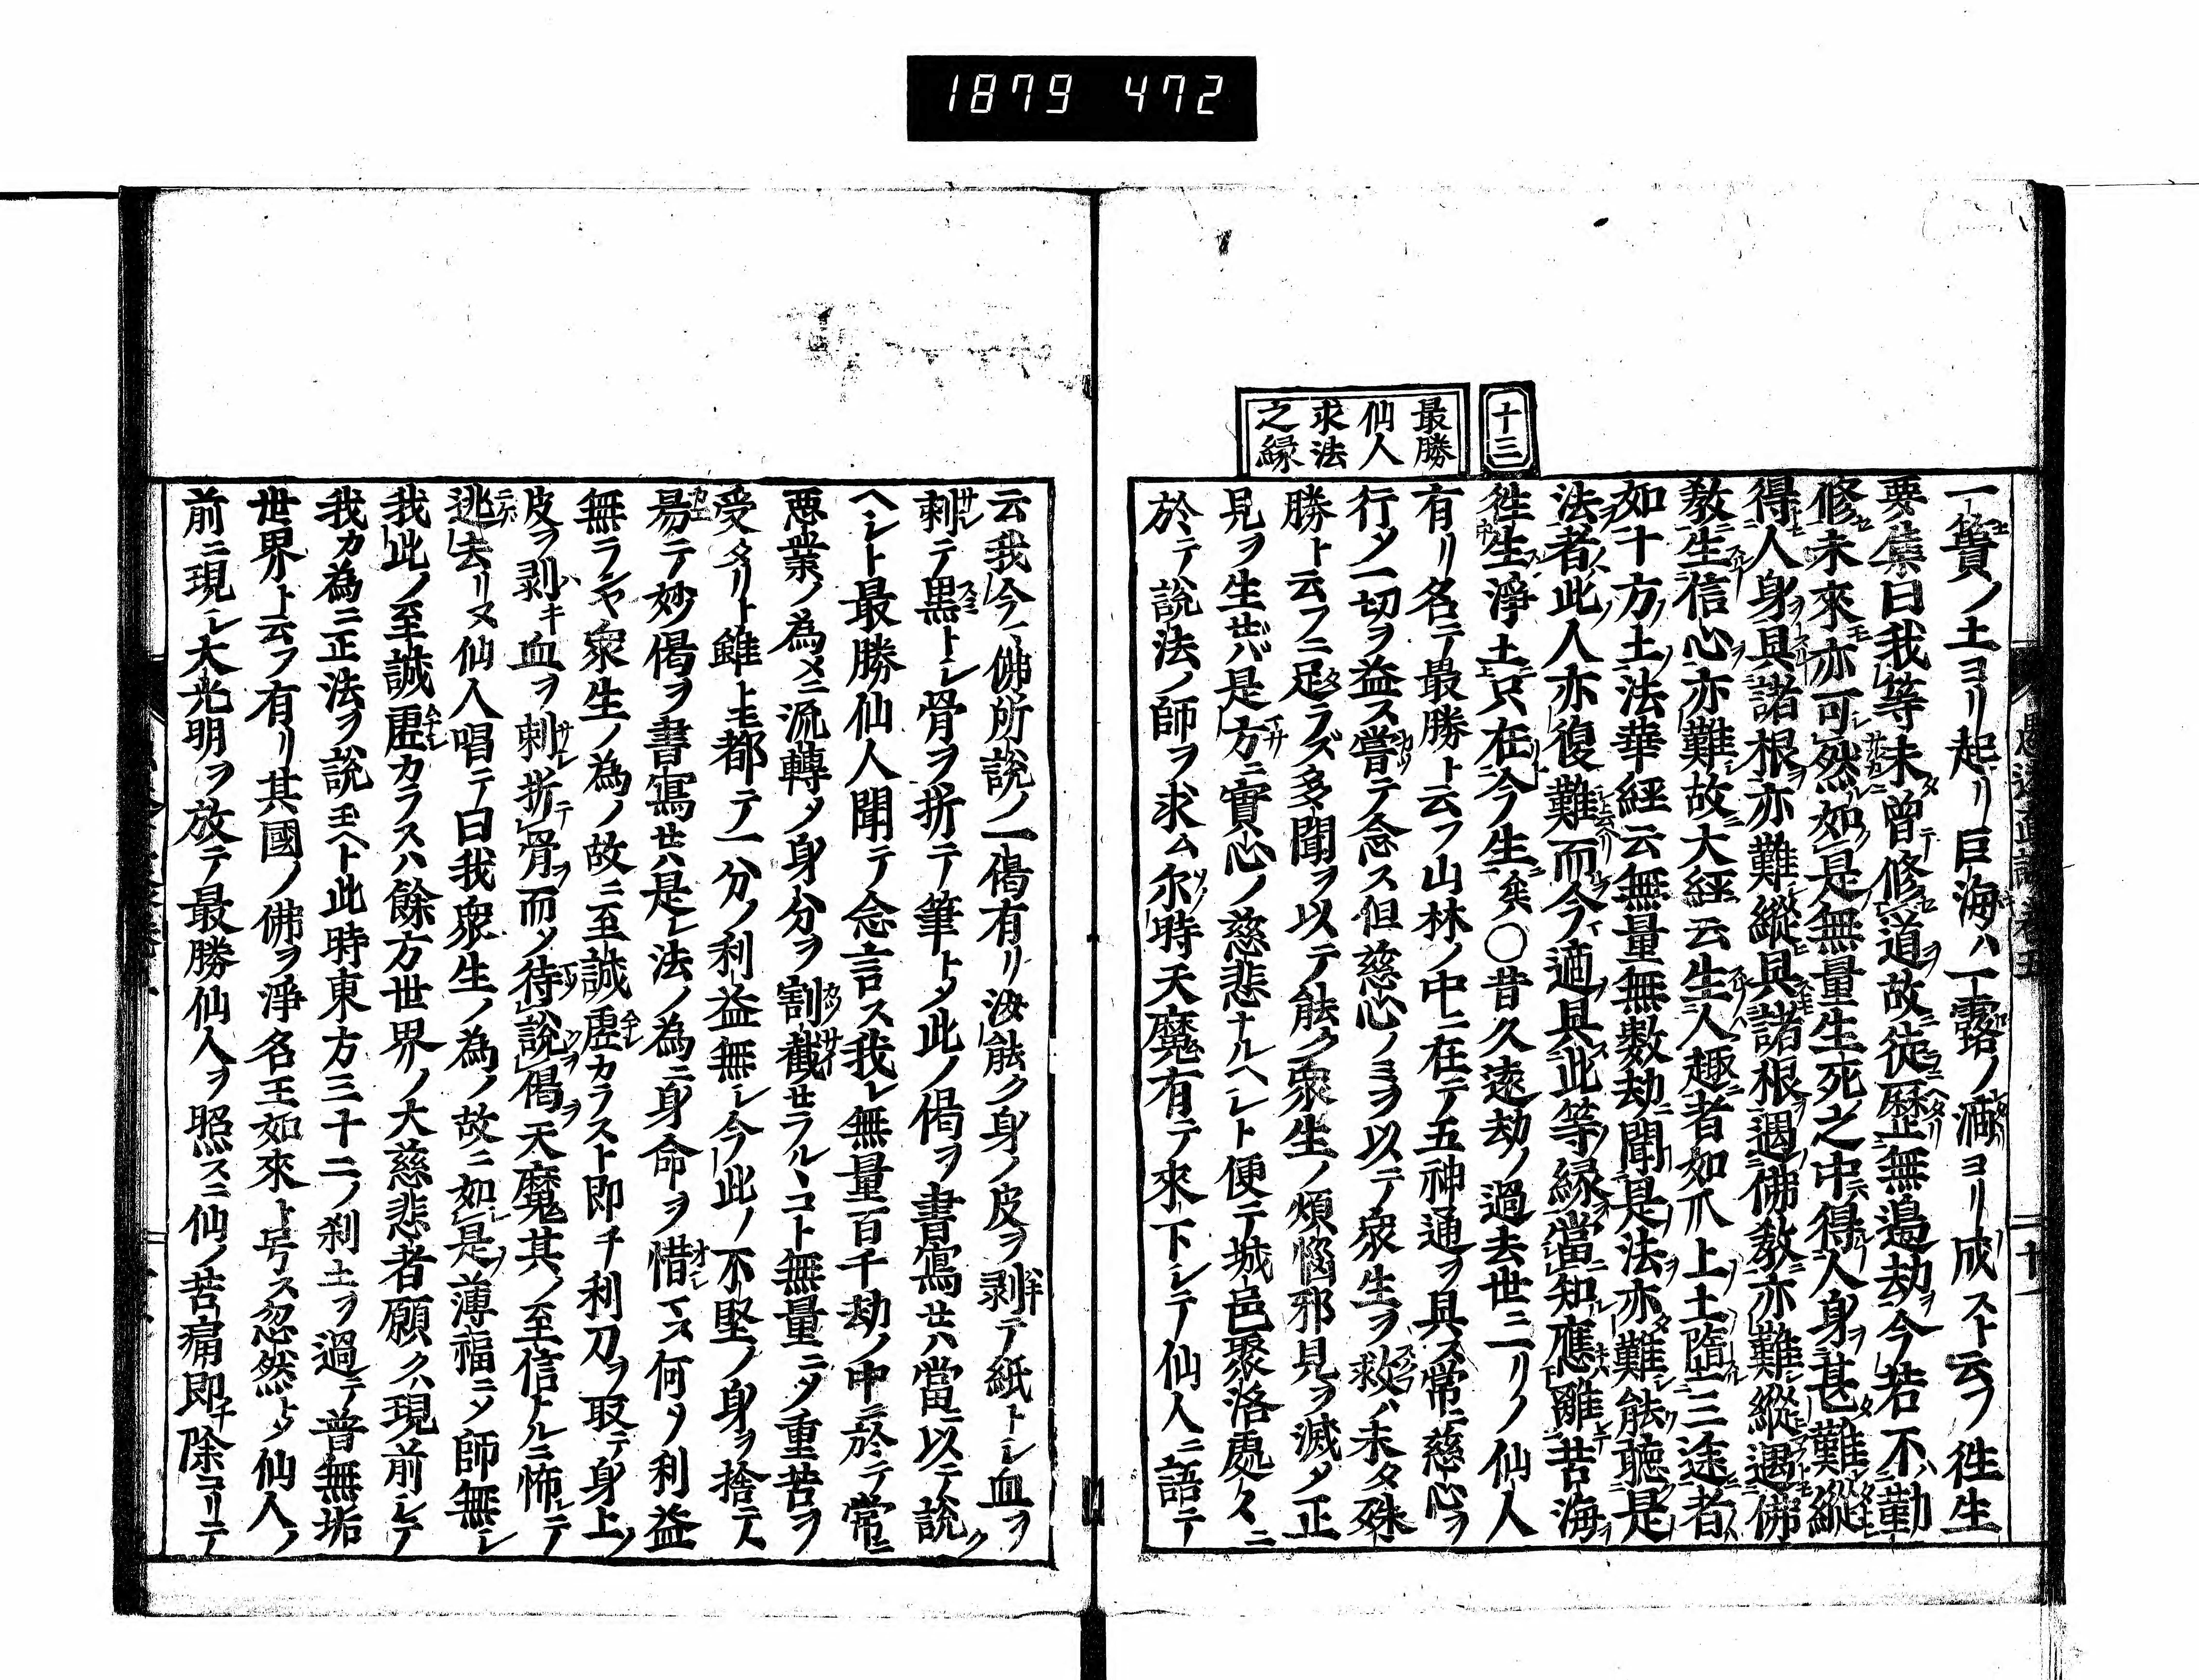 1879 472
十三
最勝
仙人
求法
之縁
一簣ノ土ヨリ起リ巨海ハ一露ノ滴ヨリ成スト云フ徃生
要集曰我等未曾修道故徒歴無邉劫今若不勤
修未來亦可然如是無量生死之中得人身甚難縱
得人身具諸根亦難縱具諸根遇佛教亦難縱遇佛
教生信心亦難故大經云生人趣者如爪上土墮三途者
如十方土法華經云無量無数劫聞是法亦難能聽是
法者此人亦復難而今適具此等縁當知應離苦海
徃生淨土只在今生矣○昔久遠劫ノ過去世ニ一リノ仙人
有リ名テ最勝ト云フ山林ノ中ニ在テ五神通ヲ具ス常ニ慈心ヲ
行メ一切ヲ益ス嘗テ念ス但慈心ノミヲ以テ衆生ヲ救ハ未タ殊
勝ト云フニ足ラズ多聞ヲ以テ能ク衆生ノ煩惱邪見ヲ滅メ正
見ヲ生セバ是方ニ實心ノ慈悲ナルヘレト便テ城邑聚落處々ニ
於テ說法ノ師ヲ求ム尔時天魔有テ來下レテ仙人ニ語テ
云我今佛所說ノ一偈有リ汝能ク身ノ皮ヲ剥テ紙トレ血ヲ
刺テ墨トレ骨ヲ折テ筆トメ此ノ偈ヲ書寫セハ當ニ以テ說ク
ヘレト最勝仙人聞テ念言ス我レ無量百千劫ノ中ニ於テ常ニ
悪業ノ為メニ流轉メ身分ヲ割截セラルヽコト無量ニメ重苦ヲ
受タリト雖トモ都テ一分ノ利益無レ今此ノ不堅ノ身ヲ捨テ
易テ妙偈ヲ書寫セハ是レ法ノ為ニ身命ヲ惜マス何ノ利益
無ランヤ衆生ノ為ノ故ニ至誠虚カラスト即チ利刀ヲ取テ身上ノ
皮ヲ剥キ血ヲ刺折骨而メ待說偈天魔其ノ至信ナルニ怖レテ
逃去リヌ仙人唱テ曰我衆生ノ為ノ故ニ如是薄福ニメ師無レ
我此ノ至誠虚カラスハ餘方世界ノ大慈悲者願クハ現前レテ
我カ為ニ正法ヲ說玉ヘト此時東方三十二ノ刹土ヲ過テ普無垢
世界ト云フ有リ其國ノ佛ヲ淨名王如來ト号ス忽然トメ仙人ノ
前ニ現レ大光明ヲ放テ最勝仙人ヲ照スニ仙ノ苦痛即チ除コリテ